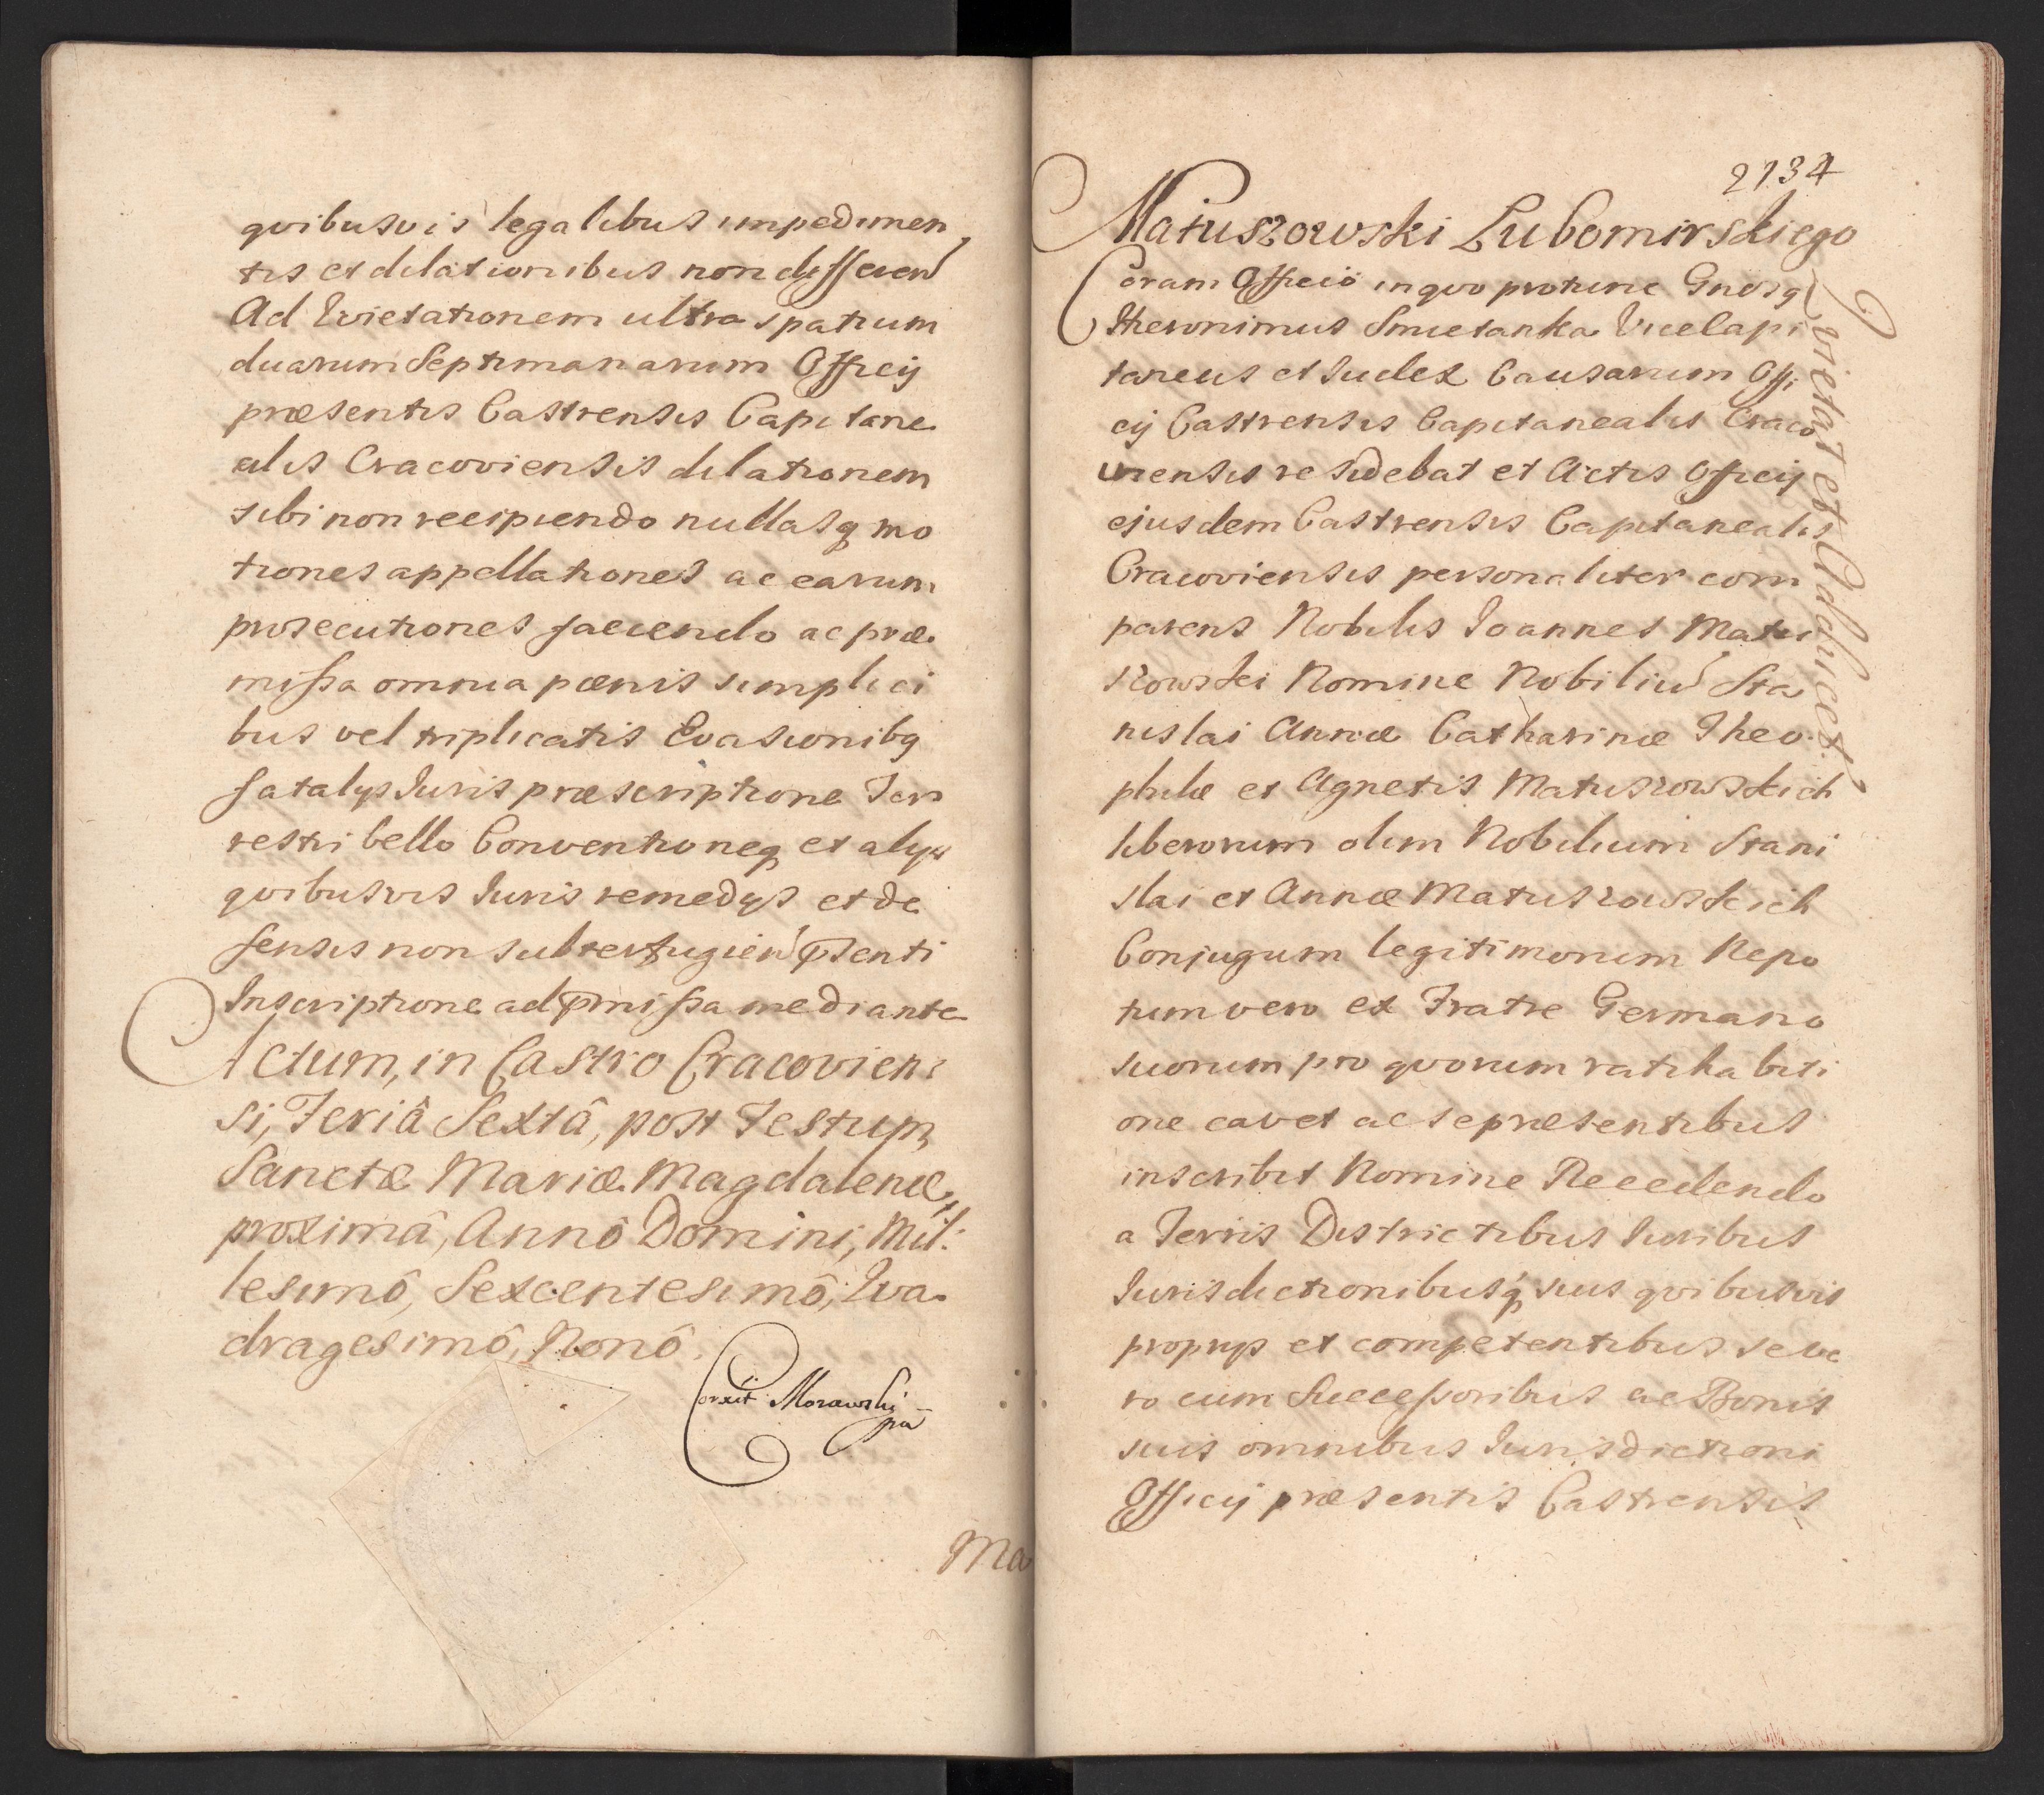 qvibusvis legalibus impedimen
tis et dilationibus non differen
Ad Qvietationem ultra spatium
duarum Septimanarum Officij
præsentis Castrensis Capitane
alis Cracoviensis dilationem
sibi non recipiendo nullasq mo
tiones appellationes ac earum
prosecutiones faciendo ac præ
missa omnia pænis simplici
bus vel triplicatis Evasionibq
fatalys Iuris præscriptione Ter
restri bello Conventioneq et alijs
qvibusvis Iuris remedys et de
fensis non subterfugien pnti
Inscriptione ad pmissa mediante
Actum, in Castro Cracovien
si, Feriâ Sextâ, post Festum,
Sanctæ Mariæ Magdalenæ,
proximâ, Annô Domini, Mil:
lesimô, Sexcentesimô, Qva
dragesimô, Nonô.
Corexit Morawski
mp
Ma
2134
Matuszowski Lubomirskiego
Coram Officio in qvo protunc Gnosq
Hieronimus Smietanka Vicecapi
taneus et Iudex Causarum Offi
cij Castrensis Capitanealis Craco
viensis residebat et Actis Officij
ejusdem Castrensis Capitanealis
Cracoviensis personaliter com
parens Nobilis Ioannes Matu
szowski Nomine Nobiliu Sta
nislai Annæ Catharinæ Theo
philæ et Agnetis Matuszowskich
liberorum olim Nobilium Stani
slai et Annæ Matuszowskich
Conjugum legitimorum Nepo
tum vero ex Fratre Germano
suorum pro qvorum ratihabiti
one cavet ac se præsentibus
inscribit Nomine Recedendo
a Terris Districtibus Iuribus
Iurisdictionibusq suis qvibusvis
proprys et competentibus se ve
ro cum Successoribus ac Bonis
suis omnibus Iurisdictioni
Officij præsentis Castrensis
Qvietat et Adducet